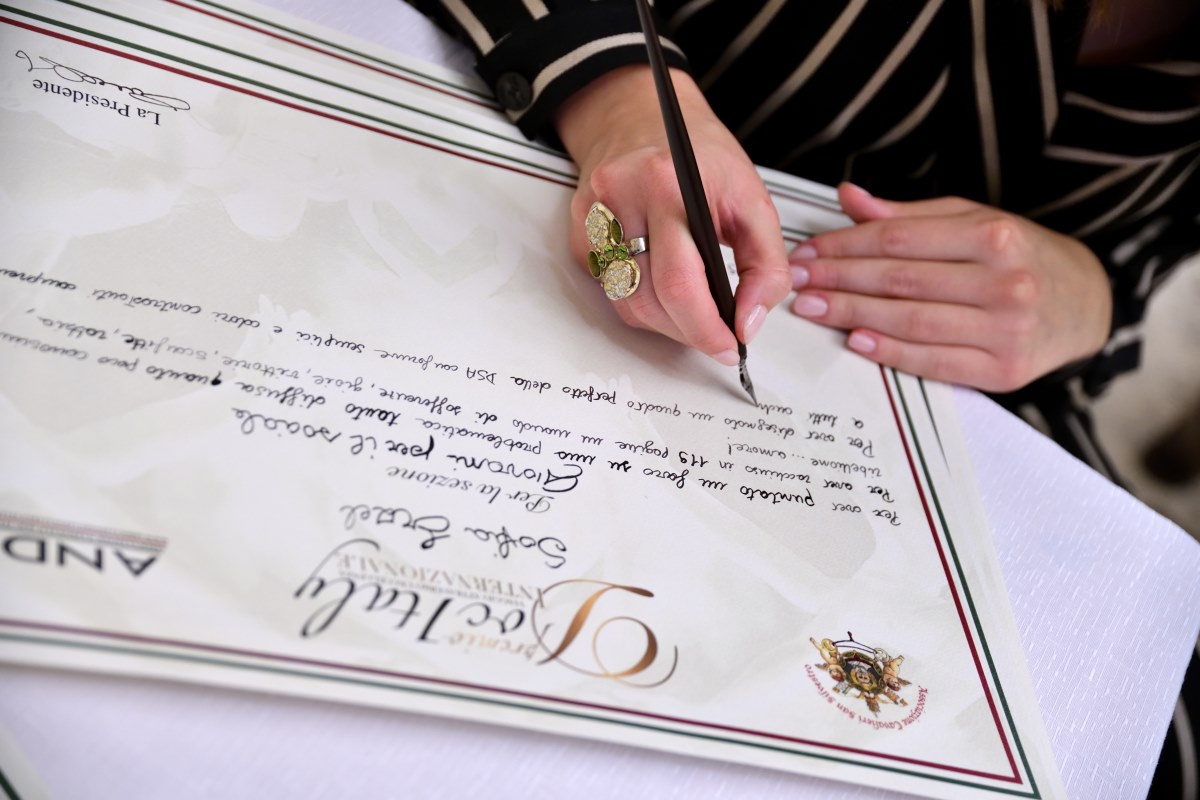 Associazione Cavalieri San Silvestro
AND
premio
DocItaly
INTERNAZIONALE
Sofia
Per la sezione
Giovani per il sociale
Per aver puntato un faro su una problematica tanto diffusa quanto poco
Per aver racchiuso in 119 pagine un mondo di sofferenze, gioie, vittorie, sconfitte, rabbia,
ribellione ... amore!
Per aver disegnato un quadro perfetto della DSA con forme semplici e colori contrastanti
a tutti
La Presidente